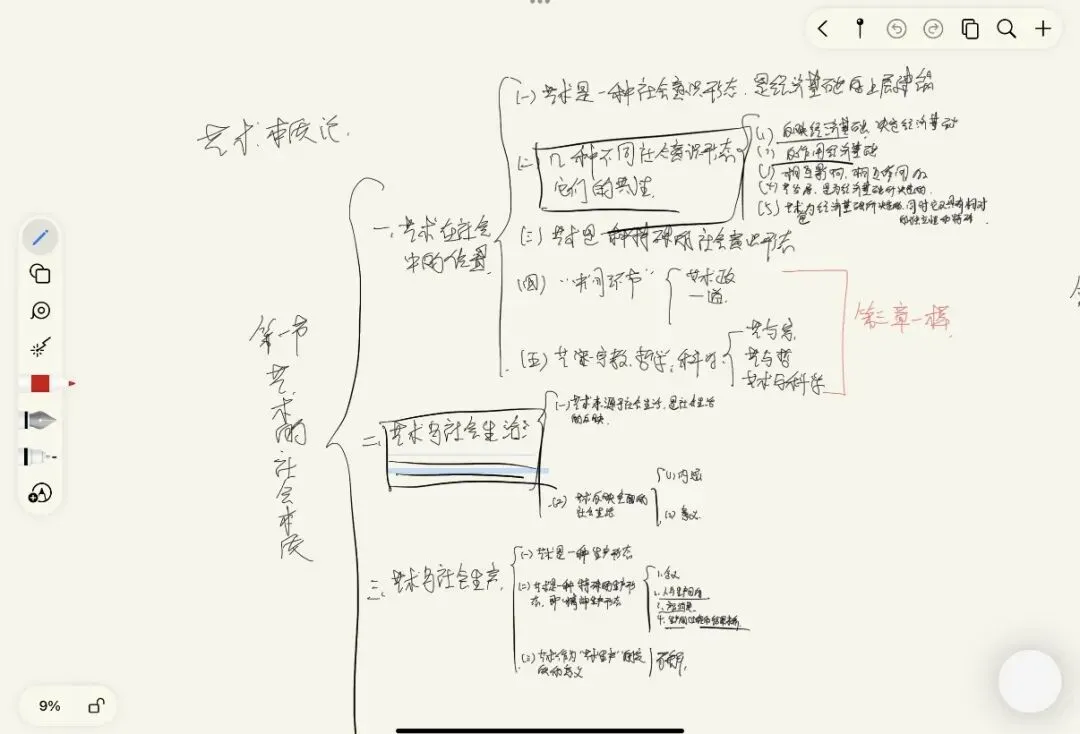 艺术本质论
第一节 艺术的社会本质
一、艺术在社会
中的位置
(一)艺术是一种社会意识形态,是经济基础的上层建筑
(二)几种不同社会意识形态
它们的共性
(1)反映经济基础,决定经济基础
(2)反作用经济基础
(3)相互影响,相互作用
(5)艺术为经济基础所决定,同时它又具有相对
的独立性和特殊
(三)艺术是一种特殊的社会意识形态
(四)“中间环节”
艺术政
一道
(五)艺宗宗教、哲学、科学
艺与宗
艺与哲
艺术与科学
第三章一样
二、艺术与社会生活:
(一)艺术来源于社会生活,是社会生活
的反映
(2)艺术反映全面的
社会生活
(1)内涵
(2)意义
三、艺术与社会生产
(一)艺术是一种生产形态
(二)艺术是一种特殊的生产形
态,即“精神生产形态
1.含义
(三)艺术作为“艺术生产”
的意义
9%